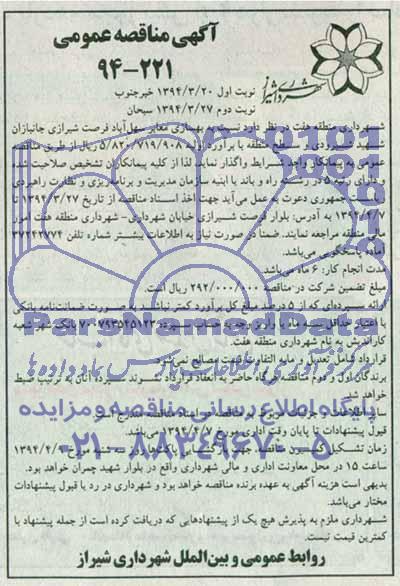 آگهی مناقصه عمومی
۹۴-۲۲۱
شهرداری شیراز
نوبت اول ۱۳۹۴/۳/۲۰ خبرجنوب
نوبت دوم ۱۳۹۴/۳/۲۷ سبحان
شهرداری منطقه هفت در نظر دارد نسبت به بهسازی معابر سهل‌آباد فرصت شیرازی جانبازان
شهید و سطح منطقه با برآورد اولیه ۵/۸۲۰/۷۱۹/۹۰۸ ریال از طریق مناقصه
عمومی به پیمانکار واجد شرایط واگذار نماید. لذا از کلیه پیمانکاران تشخیص صلاحیت شده
دارای رتبه ۵ در رشته راه و باند یا ابنیه سازمان مدیریت و برنامه‌ریزی و نظارت راهبردی
ریاست جمهوری دعوت به عمل می‌آید جهت اخذ اسناد مناقصه از تاریخ ۱۳۹۴/۳/۲۷ تا
۱۳۹۴/۴/۷ به آدرس: بلوار فرصت شیرازی خیابان شهرداری- شهرداری منطقه هفت امور
مالی منطقه مراجعه نمایند. ضمنا در صورت نیاز به اطلاعات بیشتر شماره تلفن ۳۷۲۴۲۷۷۴
آماده پاسخگویی می‌باشد.
مدت انجام کار: ۶ ماه می‌باشد.
مبلغ تضمین شرکت در مناقصه ۲۹۲/۰۰۰/۰۰۰ ریال است.
ارائه سپرده‌ای که از ۵ درصد مبلغ کل برآورد کمتر نباشد به صورت ضمانت‌نامه بانکی
با اعتبار حداقل سه ماه یا واریز وجه به حساب سپرده ۷۰۰۷۹۳۵۴۵۱۲۳ بانک شهر شعبه
کاراندیش به نام شهرداری منطقه هفت.
قرارداد شامل تعدیل و مابه التفاوت قیمت مصالح نمی‌شود.
برندگان اول و دوم مناقصه هرگاه حاضر به انعقاد قرارداد نشوند سپرده آنان به ترتیب ضبط
خواهد شد.
سایر اطلاعات و جزئیات مربوط به مناقصه در اسناد مناقصه مندرج است.
قبول پیشنهادات تا پایان وقت اداری مورخ ۱۳۹۴/۴/۷ می‌باشد.
زمان تشکیل کمیسیون مناقصه جهت بازگشایی پاکت‌ها روز شنبه مورخ
ساعت ۱۵ در محل معاونت اداری و مالی شهرداری واقع در بلوار شهید چمران خواهد بود.
بدیهی است هزینه آگهی به عهده برنده مناقصه خواهد بود و شهرداری در رد یا قبول پیشنهادات
مختار می‌باشد.
شهرداری ملزم به پذیرش هیچ یک از پیشنهادهایی که دریافت کرده است از جمله پیشنهاد با
کمترین قیمت نیست.
روابط عمومی و بین‌الملل شهرداری شیراز
ParsNamadData
فرآوری اطلاعات پارس نماد داده‌ها
پایگاه اطلاع رسانی مناقصه و مزایده
۰۲۱-۸۸۳۴۹۶۷۰-۵